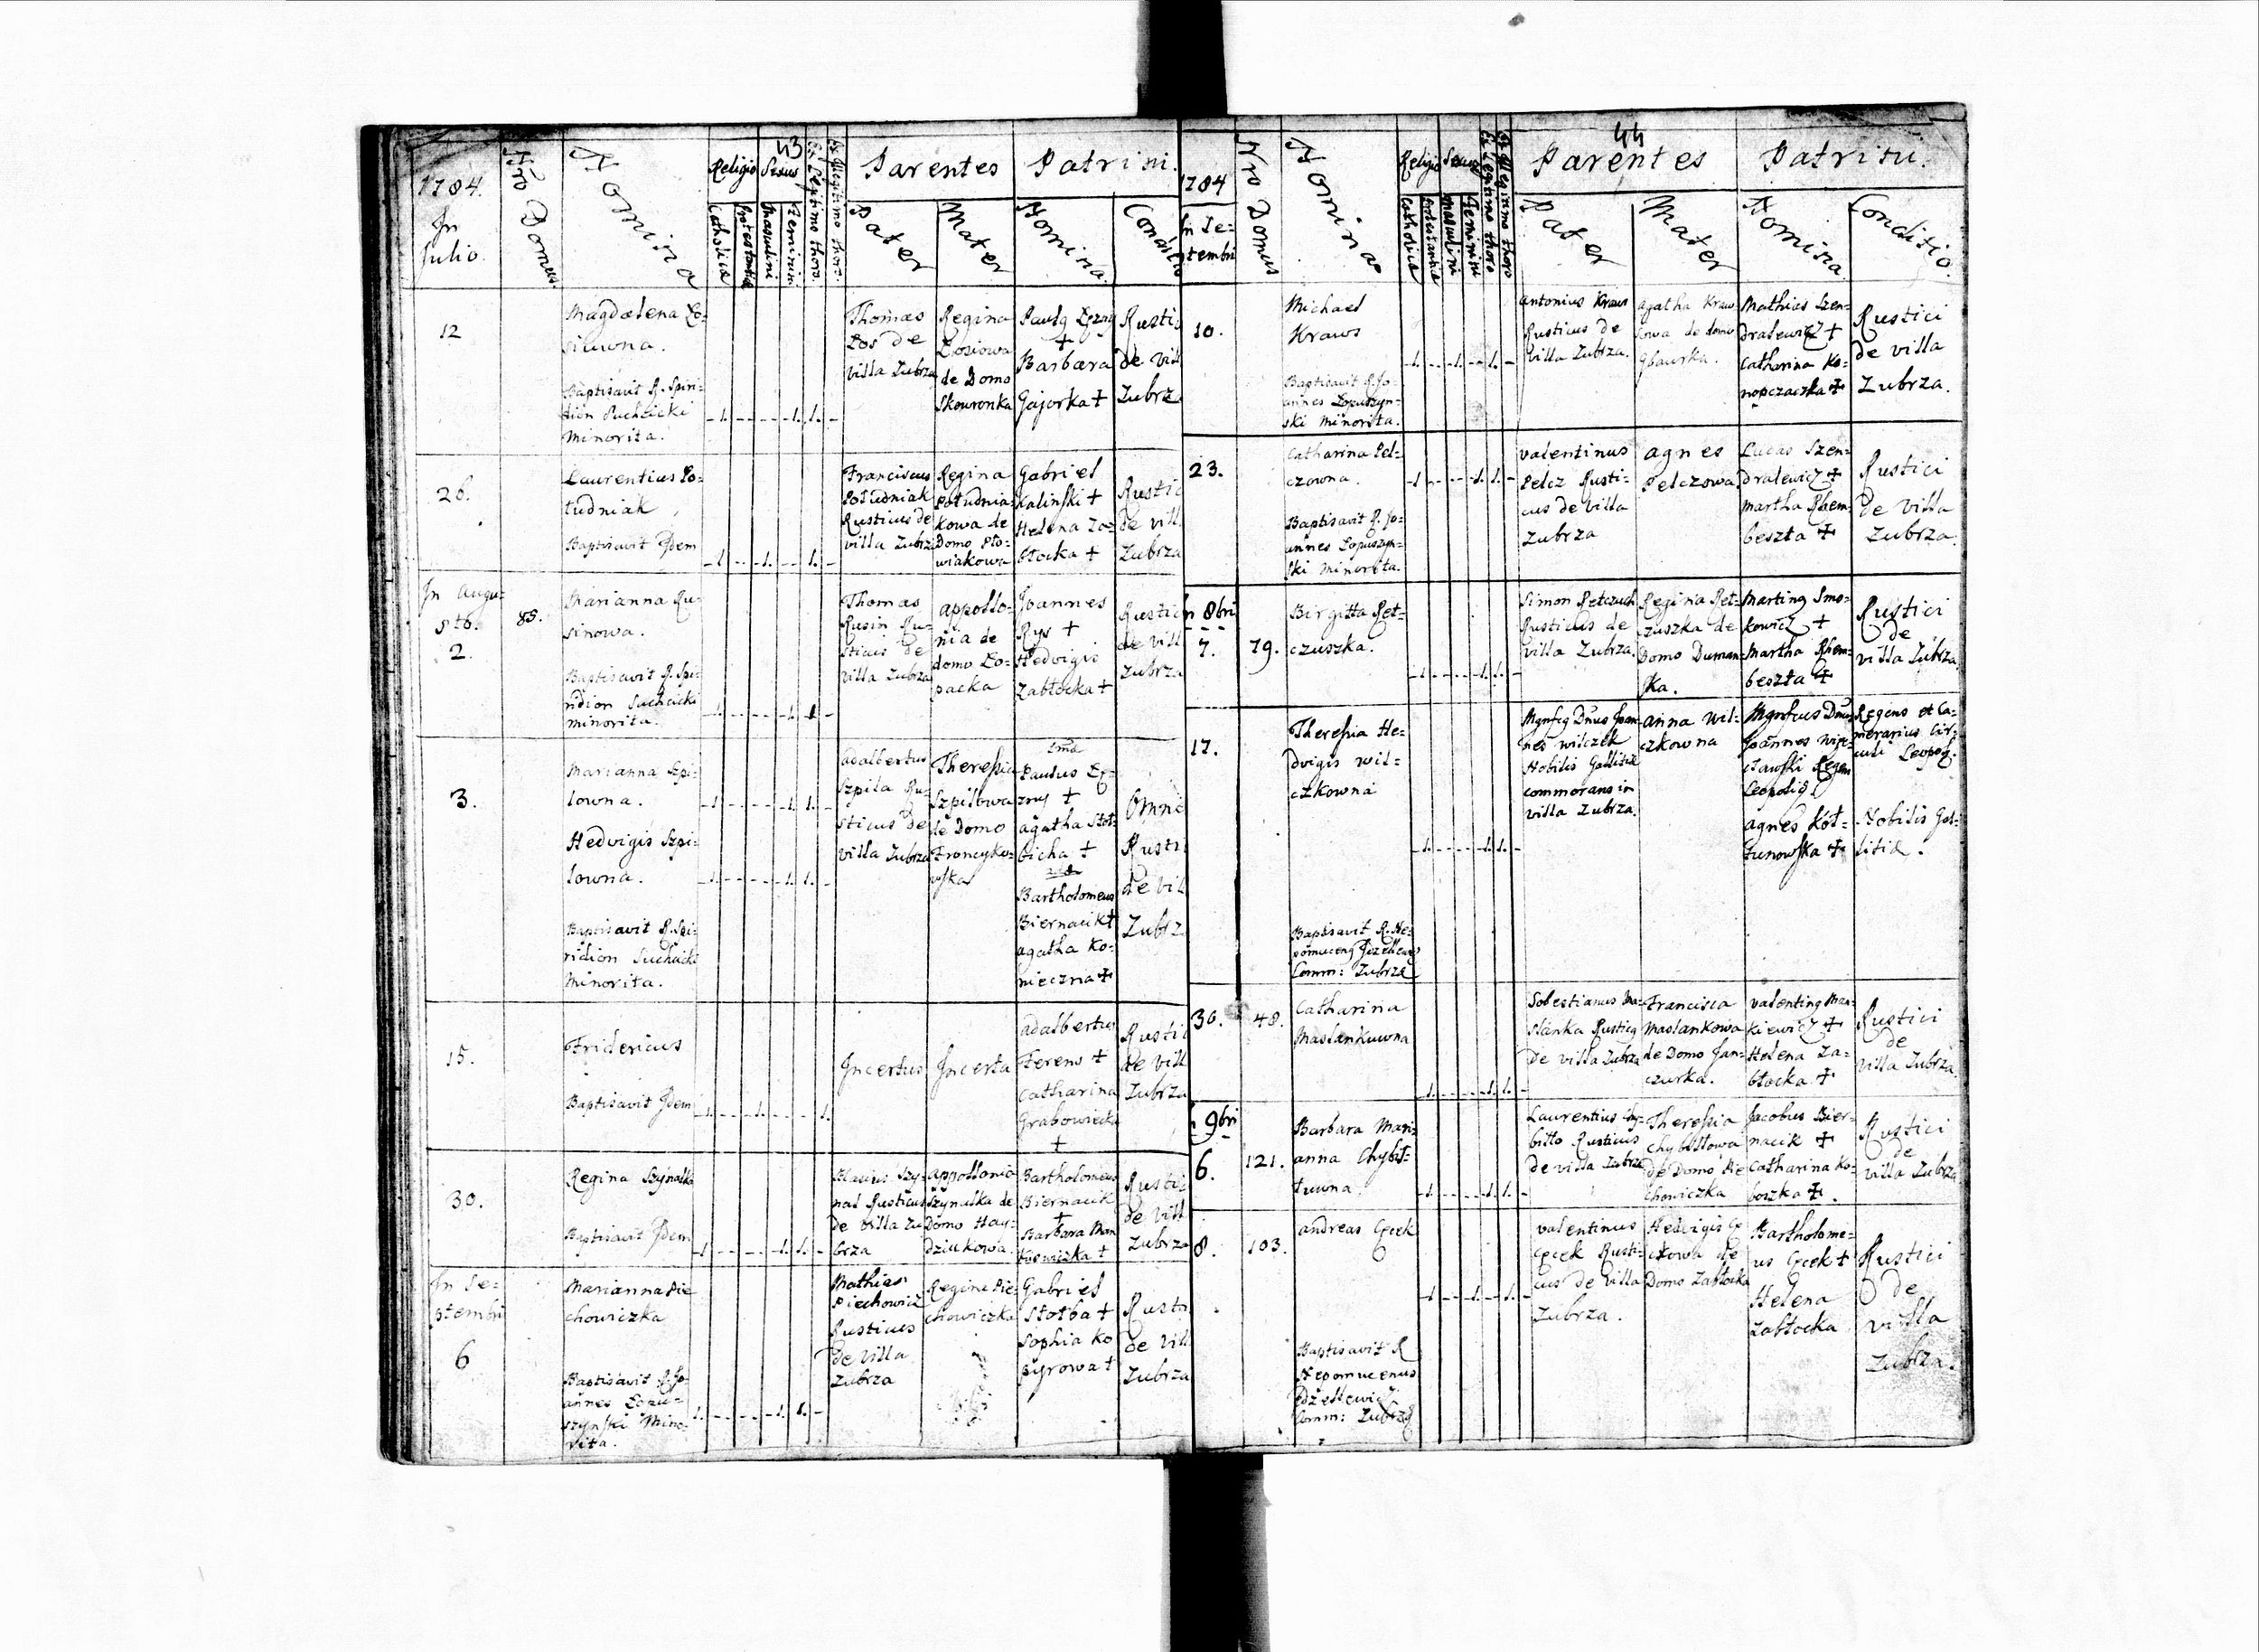 43
1784.
In
Julio.
Nro Domus.
Nomina
Religio
Catholica
Protestantica
Sexus
Masculini
Feminini
Ex Legitimo thoro.
Ex Illegitimo thoro.
Parentes
Pater
Mater
Patrini.
Nomina
Conditio
12
Magdalena Ło=
siuwna.
Baptisavit R. Spiri=
dion Suchcicki
Minorita.
Thomas
Łos de
villa Zubrza
Regina
Łosiowa
de Domo
Skowronka
Barbara
Gajorka †
Rusti
de vil
Zubrz
26.
Laurentius Po=
łudniak
Baptisavit Idem
Franciscus
Południak
Rusticus de
villa Zubrza
Regina
Południa=
kowa de
Domo Sło=
wiakowa
Gabriel
Kalinski †
Helena Za=
błocka †
Rustic
de vill
Zubrza
In Augu=
sto.
2.
85.
Marianna Ru=
sinowa.
Baptisavit R. Spi=
ridion Suchcicki
minorita.
Thomas
Rusin Ru=
sticus de
villa Zubrza
appollo=
nia de
domo Ło=
packa
Joannes
Rys †
Hedvigis
Zabłocka †
Rustic
de vill
Zubrza
3.
Marianna Szpi=
lowna.
Hedvigis Szpi=
lowna.
Baptisavit R. Spi=
ridion Suchcicki
Minorita.
adalbertus
Szpila Ru=
sticus de
villa Zubrza
Theresia
Szpilowa
de Domo
Paulus
agatha Stoł=
bicha †
Bartholomeus
Biernacik †
agatha Ko=
nieczna †
Omne
Rusti
de vil
Zubrz
15.
Fridericus
Baptisavit Idem
Incertus
Incerta
adalbertus
Ferens †
Catharina
Grabowiecka
†
Rustic
de vill
Zubrza
30.
Regina Szynalka
Baptisavit Idem
Blasius Szy=
nal Rusticus
de villa Zu
brza
Appollonia
Szynalka de
Domo Hay=
dziukowa.
Bartholomeus
Biernacik
†
Barbara Man
kiewiczka †
Rustic
de vill
Zubrza
In Se=
ptembri
6
Marianna Pie
chowiczka
Baptisavit R. Jo=
annes Łopu=
szynski Mino=
rita.
Mathias
Piechowicz
Rusticus
de villa
Zubrza
Regina Pie=
chowiczka
Gabriel
Stołba †
Sophia Ko
pyrowa †
Rusti
de vill
Zubrza
44
1784
In Se=
ptembri
Nro Domus
Nomina
Religio
Catholica
Protestantica
Sexus
Masculini
Feminini
Ex Legitimo thoro
Ex Illegitimo thoro
Parentes
Pater
Mater
Patrini.
Nomina
Conditio.
10.
Michael
Kraus
Baptisavit R. Jo=
annes Łopuszyn=
ski Minorita.
Antonius Kraus
Rusticus de
villa Zubrza.
Agatha Krau=
sowa de domo
Mathias Szen=
dralewicz †
Catharina Ko=
nopczaczka †
Rustici
de villa
Zubrza.
23.
Catharina Pel=
czowna.
Baptisavit R. Jo=
annes Łopuszyn=
ski Minorita.
valentinus
Pelcz Rusti=
cus de villa
Zubrza
agnes
Pelczowa
Lucas Szen=
dralewicz †
Martha Rhem=
beszta †
Rustici
de villa
Zubrza.
In 8bri
7.
79.
Birgitta Ret=
czuszka.
Simon Retczuch
Rusticus de
villa Zubrza.
Regina Ret=
czuszka de
Domo Duman=
ska.
Martha Rhem=
beszta †
Rustici
de
villa Zubrza.
17.
Theresia He=
dvigis Wil=
czkowna
Baptisavit R. Ne=
Comm: Zubrza
nes Wilczek
Nobilis Gallitiæ
commorans in
villa Zubrza.
anna Wil=
czkowna
agnes Koł=
tunowska †
Regens et Ca=
merarius Cir=
culi Leopol.
Nobilis Gal=
litiæ.
30.
48.
Catharina
Maslankuwna
Sebestianus Ma=
slanka
de villa Zubrza
Francisca
Maslankowa
de Domo Jan=
czurka.
kiewicz †
Helena Za=
błocka †
Rustici
de
villa Zubrza.
In 9bri
6.
121.
Barbara Mari=
anna Chybił=
łuwna.
Laurentius Chy=
biłło Rusticus
de villa Zubrza
Theresia
Chybiłłowa
de Domo Pie
chowiczka
Jacobus Bier=
nacik †
Catharina Ko=
boszka †.
Rustici
de
villa Zubrza
8.
103.
andreas
Baptisavit R
Nepomucenus
Comm: Zubrza
valentinus
Rusti=
cus de villa
Zubrza.
Hedvigis
de
Domo Zabłocka
Bartholome=
us
Helena
Zabłocka
Rustici
de
villa
Zubrza.